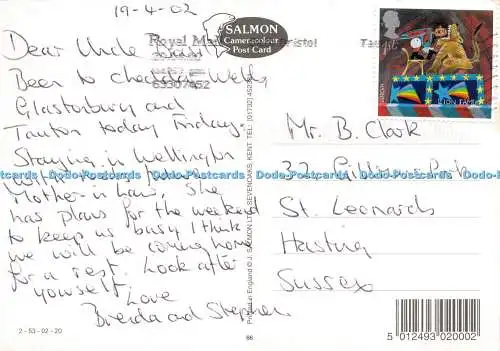 19-4-02
Dear Uncle
Been to Cheddar Wells,
Glastonbury and
Taunton today Friday.
Staying in Wellington
with
Mother in Law, She
has plans for the weekend
to keep us busy I think
we will be coming home
for a rest. Look after
yourself.
Love
Brenda and Stephen
2-53-02-20
SALMON
Camera colour
Post Card
Royal Mail
Bristol
EUROPA
LION TAMER
Mr. B. Clark
St. Leonards
Hasting
Sussex
Printed in England © J. SALMON LTD., SEVENOAKS, KENT. TEL: (01732)
66
5 012493 020002
Dodo-Postcards Dodo-Postcards Dodo-Postcards Dodo-Postcards Dodo-Postcards